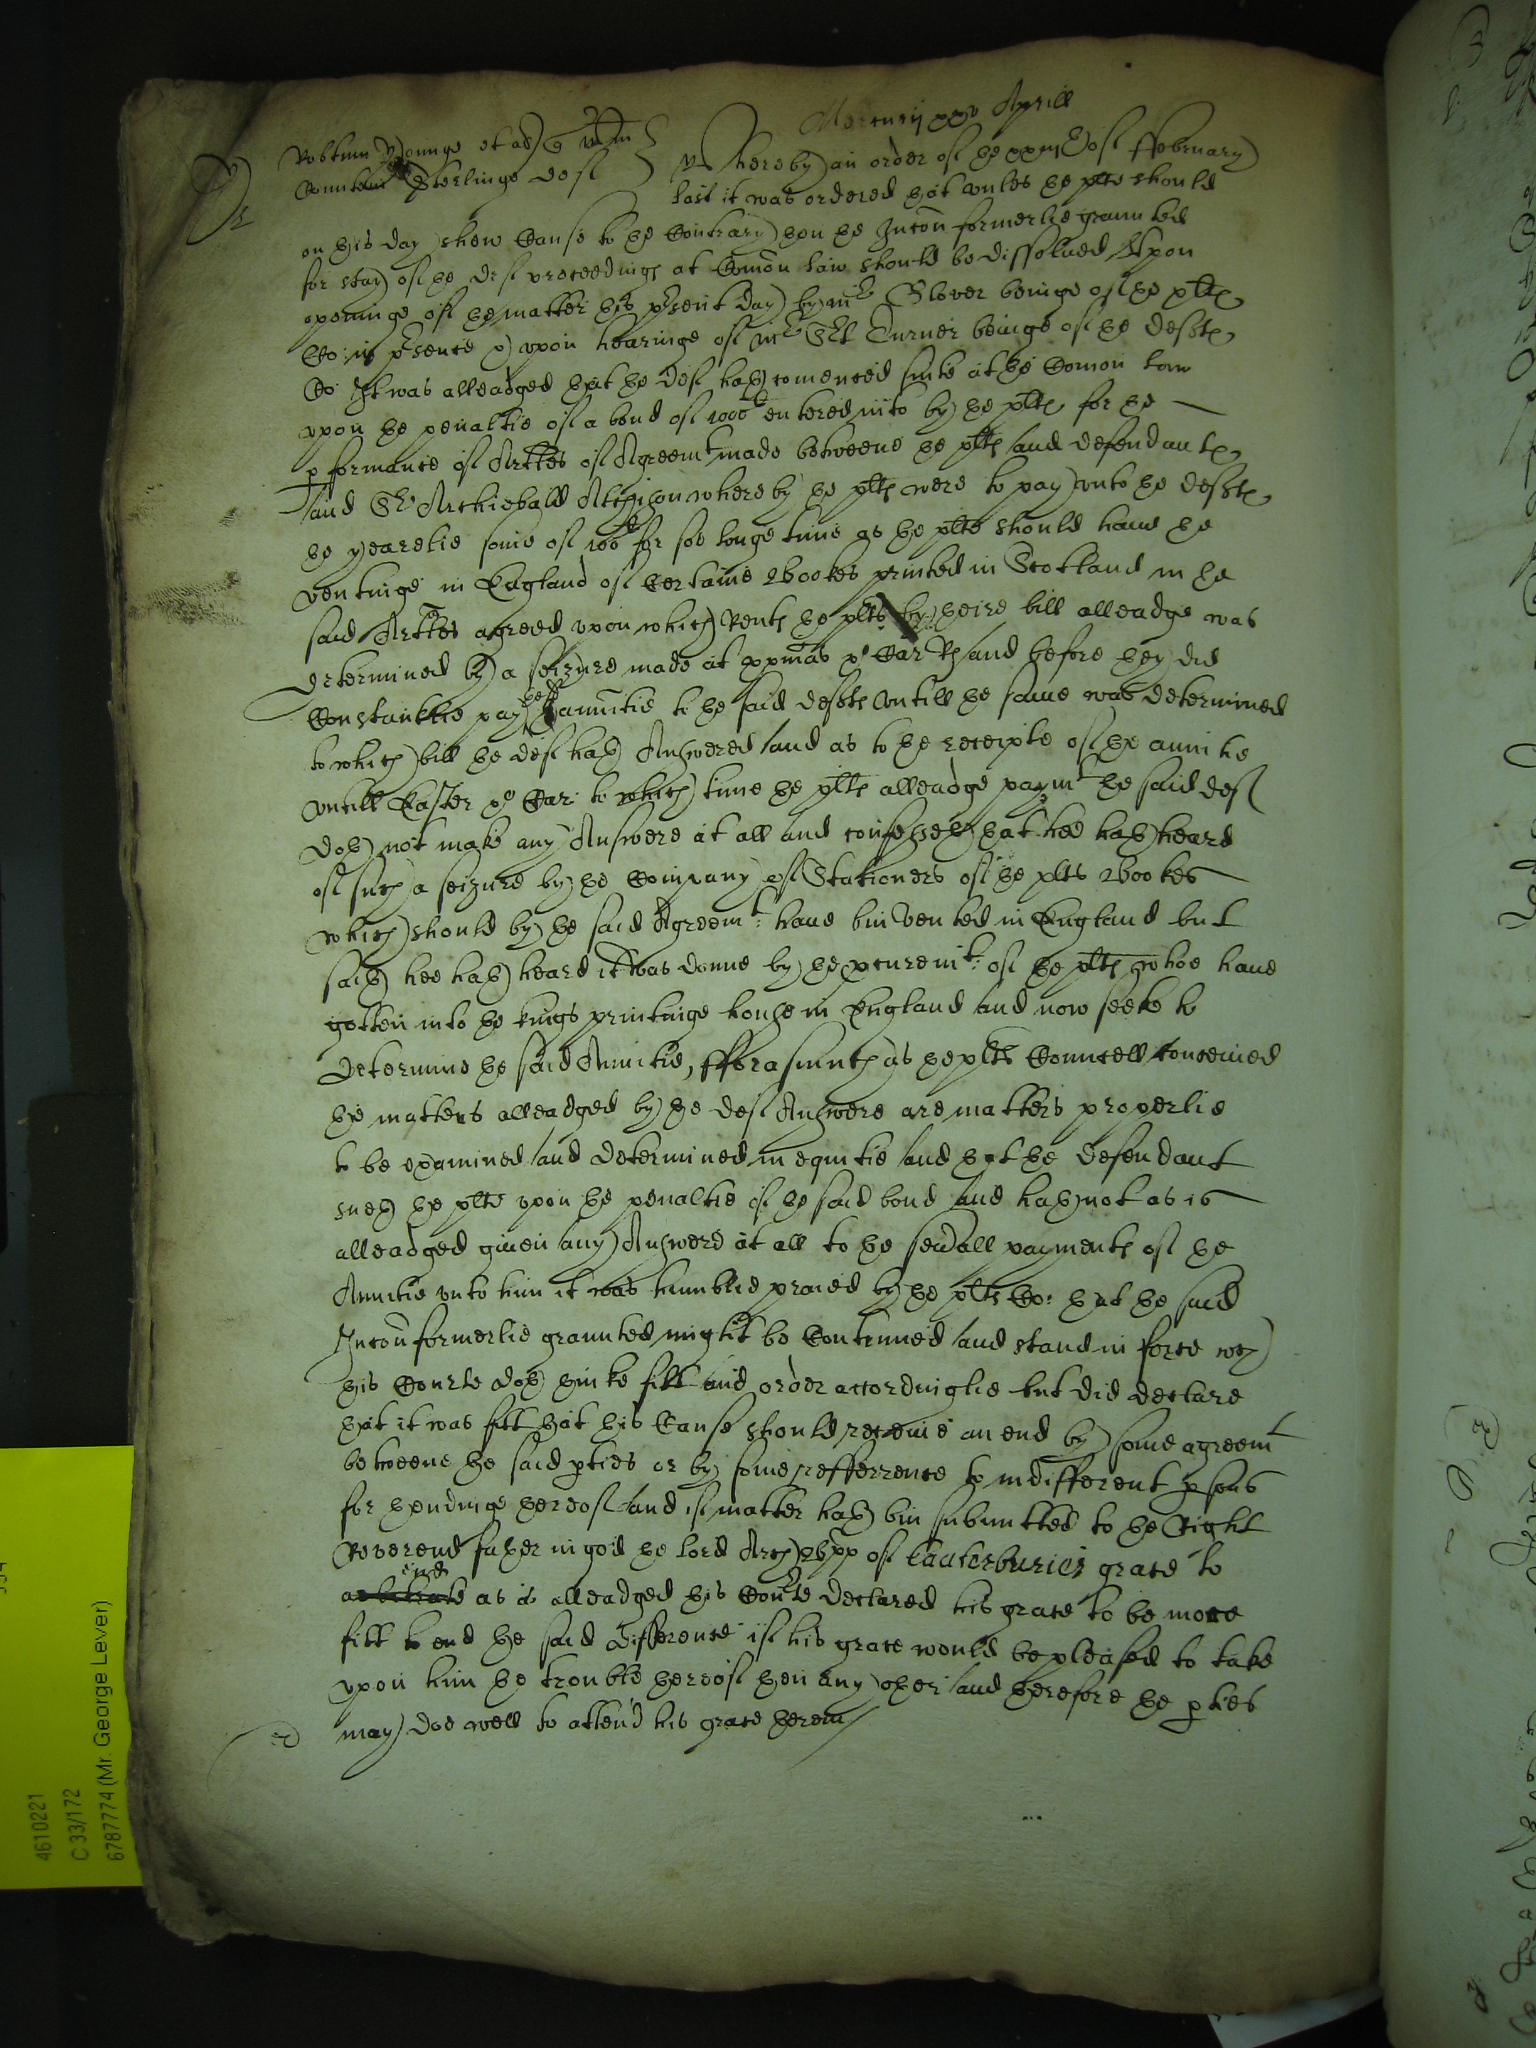 Mercurij xxvo Aprill
Robtum Younge et als quer
Comitem Sterlinge deft
Whereby an order of the xxiijth of ffebruary
last it was ordered that vnles the plte should
on this day shew Cause to the Contrary then the Iniucon formerlie graunted
for stay of the deft proceedings at Comon law should be dissolued Vpon
openinge of the matter this psent day by mr Glover beinge of the pltes
Co: in psence & vpon hearinge of mr Srt Turner beinge of the deftes
Co: It was alleadged that the deft hath comenced suite at the Comon law
vpon the penaltie of a bond of 1000l entered into by the pltes for the
pformance of Artles of Agreemt made betweene the pltes and defendantes
and Sr Archieball Atchison whereby the pltes were to pay vnto the deftes
the yearelie some of 100l for soe longe time as the plts should haue the
ventinge in England of Certaine Bookes printed in Scotland in the
said Artles agreed vpon which Rent the plts by theire bill alleadge was
determined by a seizure made at xpmas xo Car Rs and before they did
Constantlie pay the sd annuitie to the said deftes vntill the same was determined
to which bill the deft hath Answered and as to the receipte of the annuitie
vntill Easter xo Car: to which time the pltes alleadge paymt the said deft
doth not make any Answere at all and confesseth that hee hath heard
of such a seizure by the Company of Stationers of the plts Bookes
which should by the said Agreemt: haue bin vented in England but
saith hee hath heard it was donne by the pcuremt: of the pltes whoe haue
gotten into the kings printinge house in England and now seeke to
determine the said Annuitie, fforasmuch as the plts Councell conceiued
the matters alleadged by the deft Answere are matters properlie
to be examined and determined in equitie and that the defendant
sueth the plts vpon the penaltie of the said bond and hath not as is
alleadged giuen any Answere at all to the seuall payments of the
Annuitie vnto him it was humblie praied by the pltes Co: that the said
Iniucon formerlie graunted might be Continued and stand in force wch
this Courte doth thinke fitt and order accordinglie but did declare
that it was fitt that this Cause should receiue an end by some agreemt
betweene the said pties or by some refference to indifferent psons
for thendinge thereof and if matter hath bin submitted to the Right
Reverend father in god the lord Archbpp of Canterburies grace to
end
arbitrate as is alleadged this Courte declared his grace to be more
fitt to end the said difference if his grace would be pleased to take
vpon him the trouble thereof then any other and therefore the pties
may doe well to attend his grace therein
4610221
C 33/172
6787774 (Mr. George Lever)